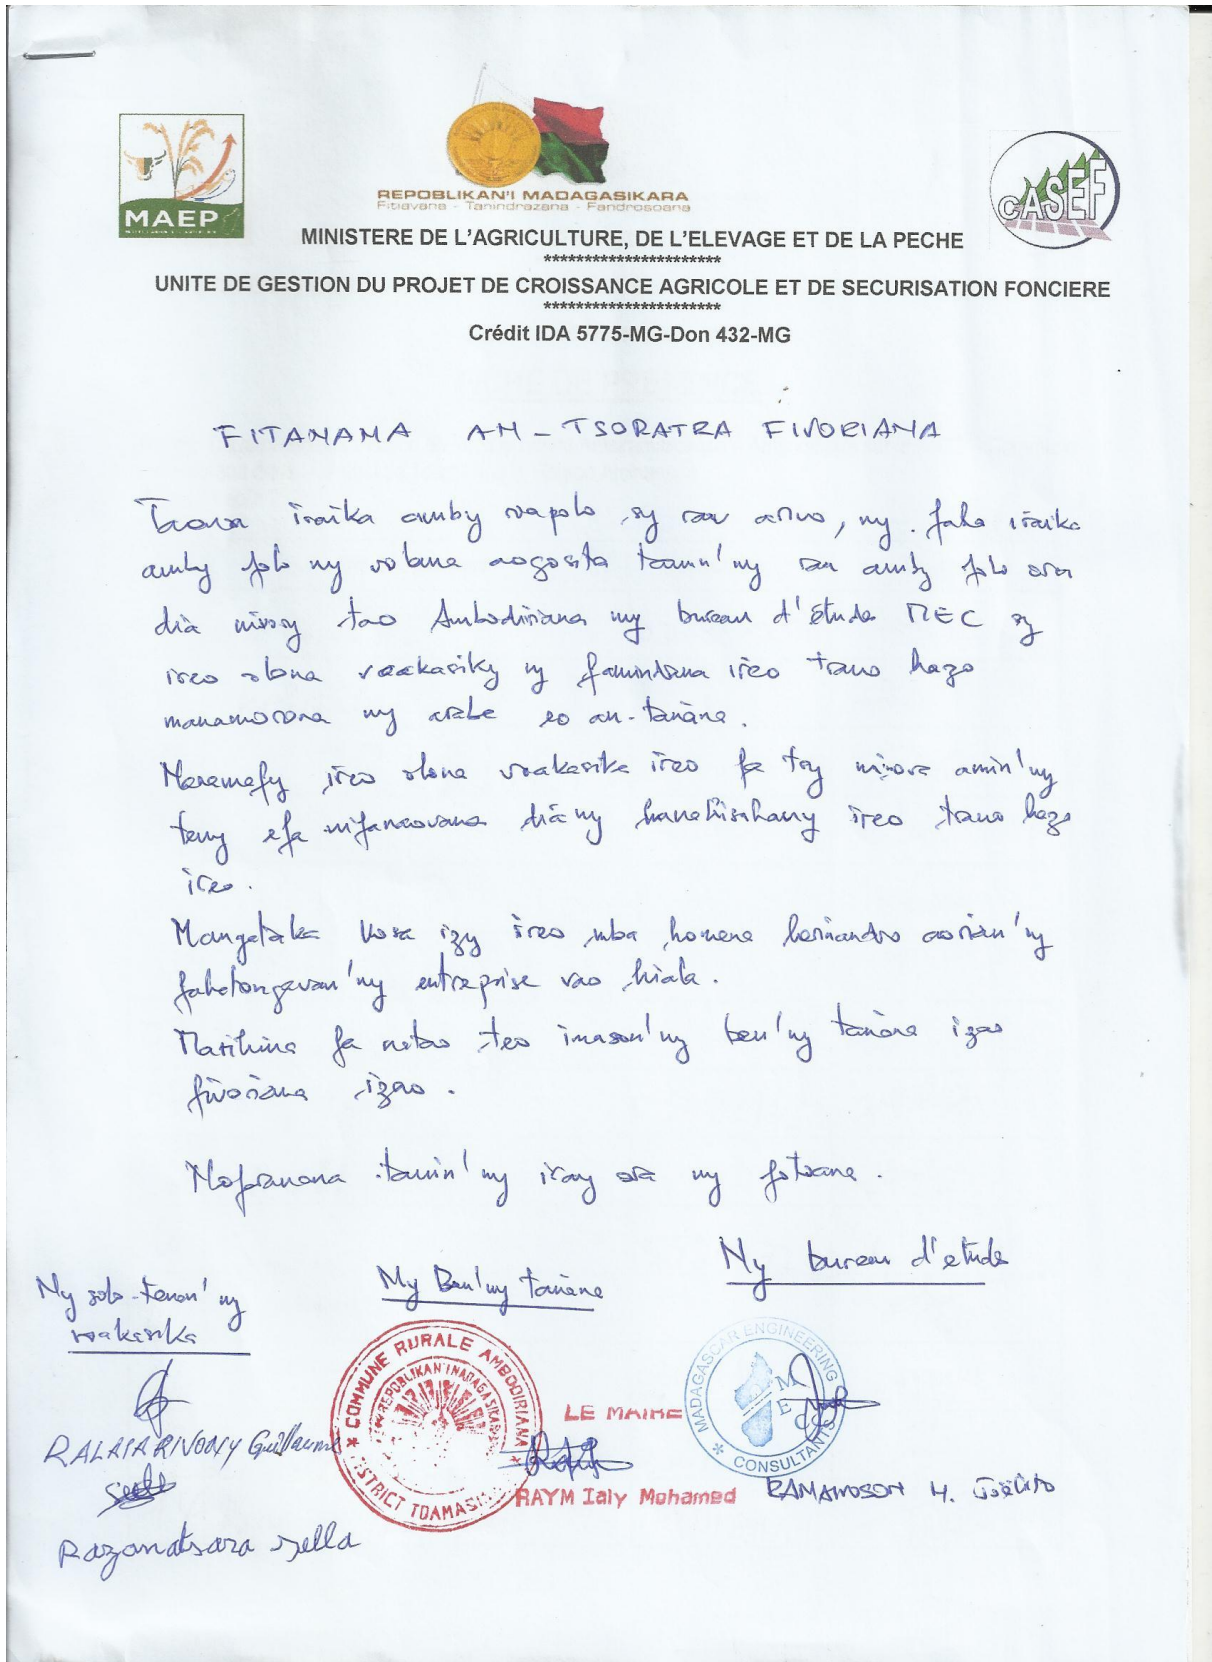 MAEP
REPOBLIKAN'I MADAGASIKARA
Fitiavana - Tanindrazana - Fandrosoana
CASEF
MINISTERE DE L'AGRICULTURE, DE L'ELEVAGE ET DE LA PECHE
**********************
UNITE DE GESTION DU PROJET DE CROISSANCE AGRICOLE ET DE SECURISATION FONCIERE
**********************
Crédit IDA 5775-MG-Don 432-MG
FITANANA AN-TSORATRA FIVORIANA
Taona iraika amby roapolo sy roa arivo, ny faha iraika
amby folo ny volana aogositra tamin'ny roa amby folo ora
dia nivory tao Ambodiriana ny bureau d'étude MEC sy
ireo olona voakasiky ny famindrana ireo trano hazo
manamorona ny arabe eo an-tanàna.
Manamafy ireo olona voakasika ireo fa tsy miova amin'ny
teny efa nifanaovana dia ny hanakisahany ireo trano hazo
ireo.
Mangataka kosa izy ireo mba homena herinandro aorian'ny
fahatongavan'ny entreprise vao hiala.
Marihina fa natao teo imason'ny ben'ny tanàna izao
fivoriana izao.
Nofaranana tamin'ny iray ora ny fotoana.
Ny solo-tenan'ny
voakasika
Ny Ben'ny tanàna
Ny bureau d'etude
COMMUNE RURALE AMBODIRIANA
REPOBLIKAN'I MADAGASIKARA
DISTRICT TOAMASINA
LE MAIRE
RAYM Ialy Mohamed
MADAGASCAR ENGINEERING
MEC
CONSULTANTS
RALAIARIVONY Guillaume
RAMAROSON H.
Razanatsara